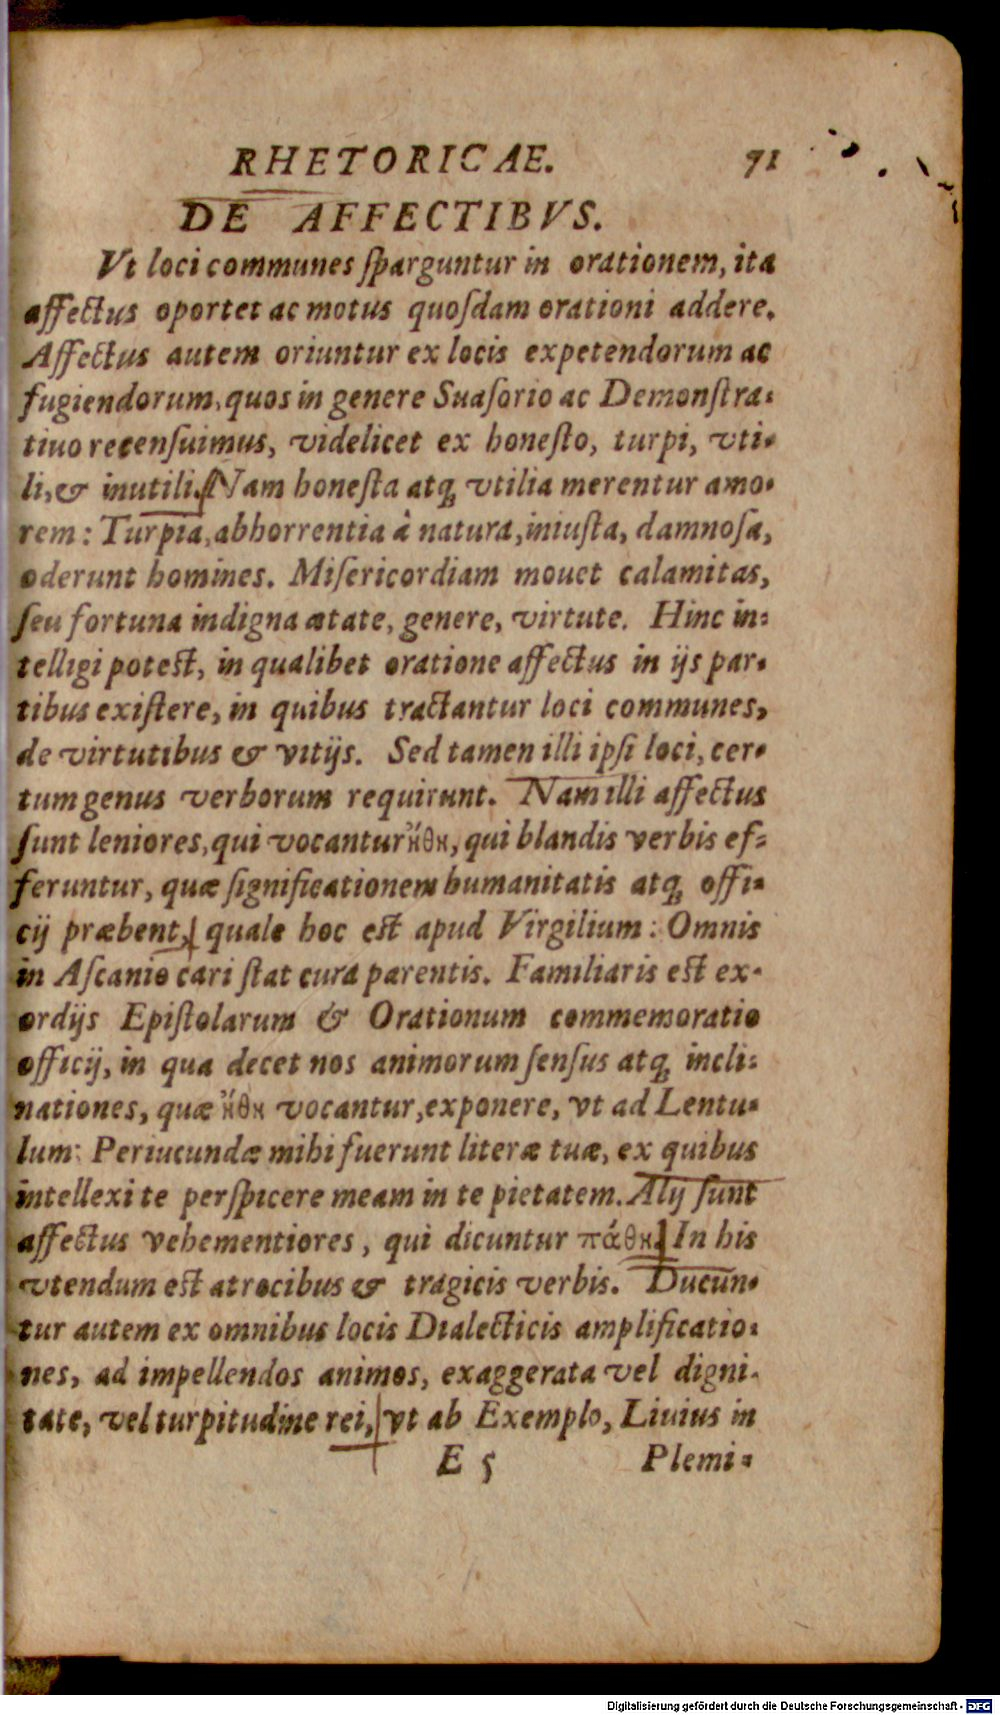 RHETORICAE. 71
DE AFFECTIBVS.
Vt loci communes ſparguntur in orationem, ita
affectus oportet ac motus quoſdam orationi addere.
Affectus autem oriuntur ex locis expetendorum ac
fugiendorum, quos in genere Suaſorio ac Demonſtra-
tiuo recenſuimus, videlicet ex honeſto, turpi, vti-
li, & inutili. Nam honeſta atq; vtilia merentur amo-
rem: Turpia, abhorrentia à natura, iniuſta, damnoſa,
oderunt homines. Miſericordiam mouet calamitas,
ſeu fortuna indigna ætate, genere, virtute. Hinc in-
telligi poteſt, in qualibet oratione affectus in ijs par-
tibus exiſtere, in quibus tractantur loci communes,
de virtutibus & vitijs. Sed tamen illi ipſi loci, cer-
tum genus verborum requirunt. Nam illi affectus
ſunt leniores, qui vocantur ἤθη, qui blandis verbis ef-
feruntur, quæ ſignificationem humanitatis atq; offi-
cij præbent, quale hoc eſt apud Virgilium: Omnis
in Aſcanio cari ſtat cura parentis. Familiaris eſt ex-
ordijs Epiſtolarum & Orationum commemoratio
officij, in qua decet nos animorum ſenſus atq; incli-
nationes, quæ ἤθη vocantur, exponere, vt ad Lentu-
lum: Periucundæ mihi fuerunt literæ tuæ, ex quibus
intellexi te perſpicere meam in te pietatem. Alij ſunt
affectus vehementiores, qui dicuntur πάθη. In his
vtendum eſt atrocibus & tragicis verbis. Ducun-
tur autem ex omnibus locis Dialecticis amplificatio-
nes, ad impellendos animos, exaggerata vel digni-
tate, vel turpitudine rei, vt ab Exemplo, Liuius in
E 5 Plemi-
Digitalisierung gefördert durch die Deutsche Forschungsgemeinschaft - DFG